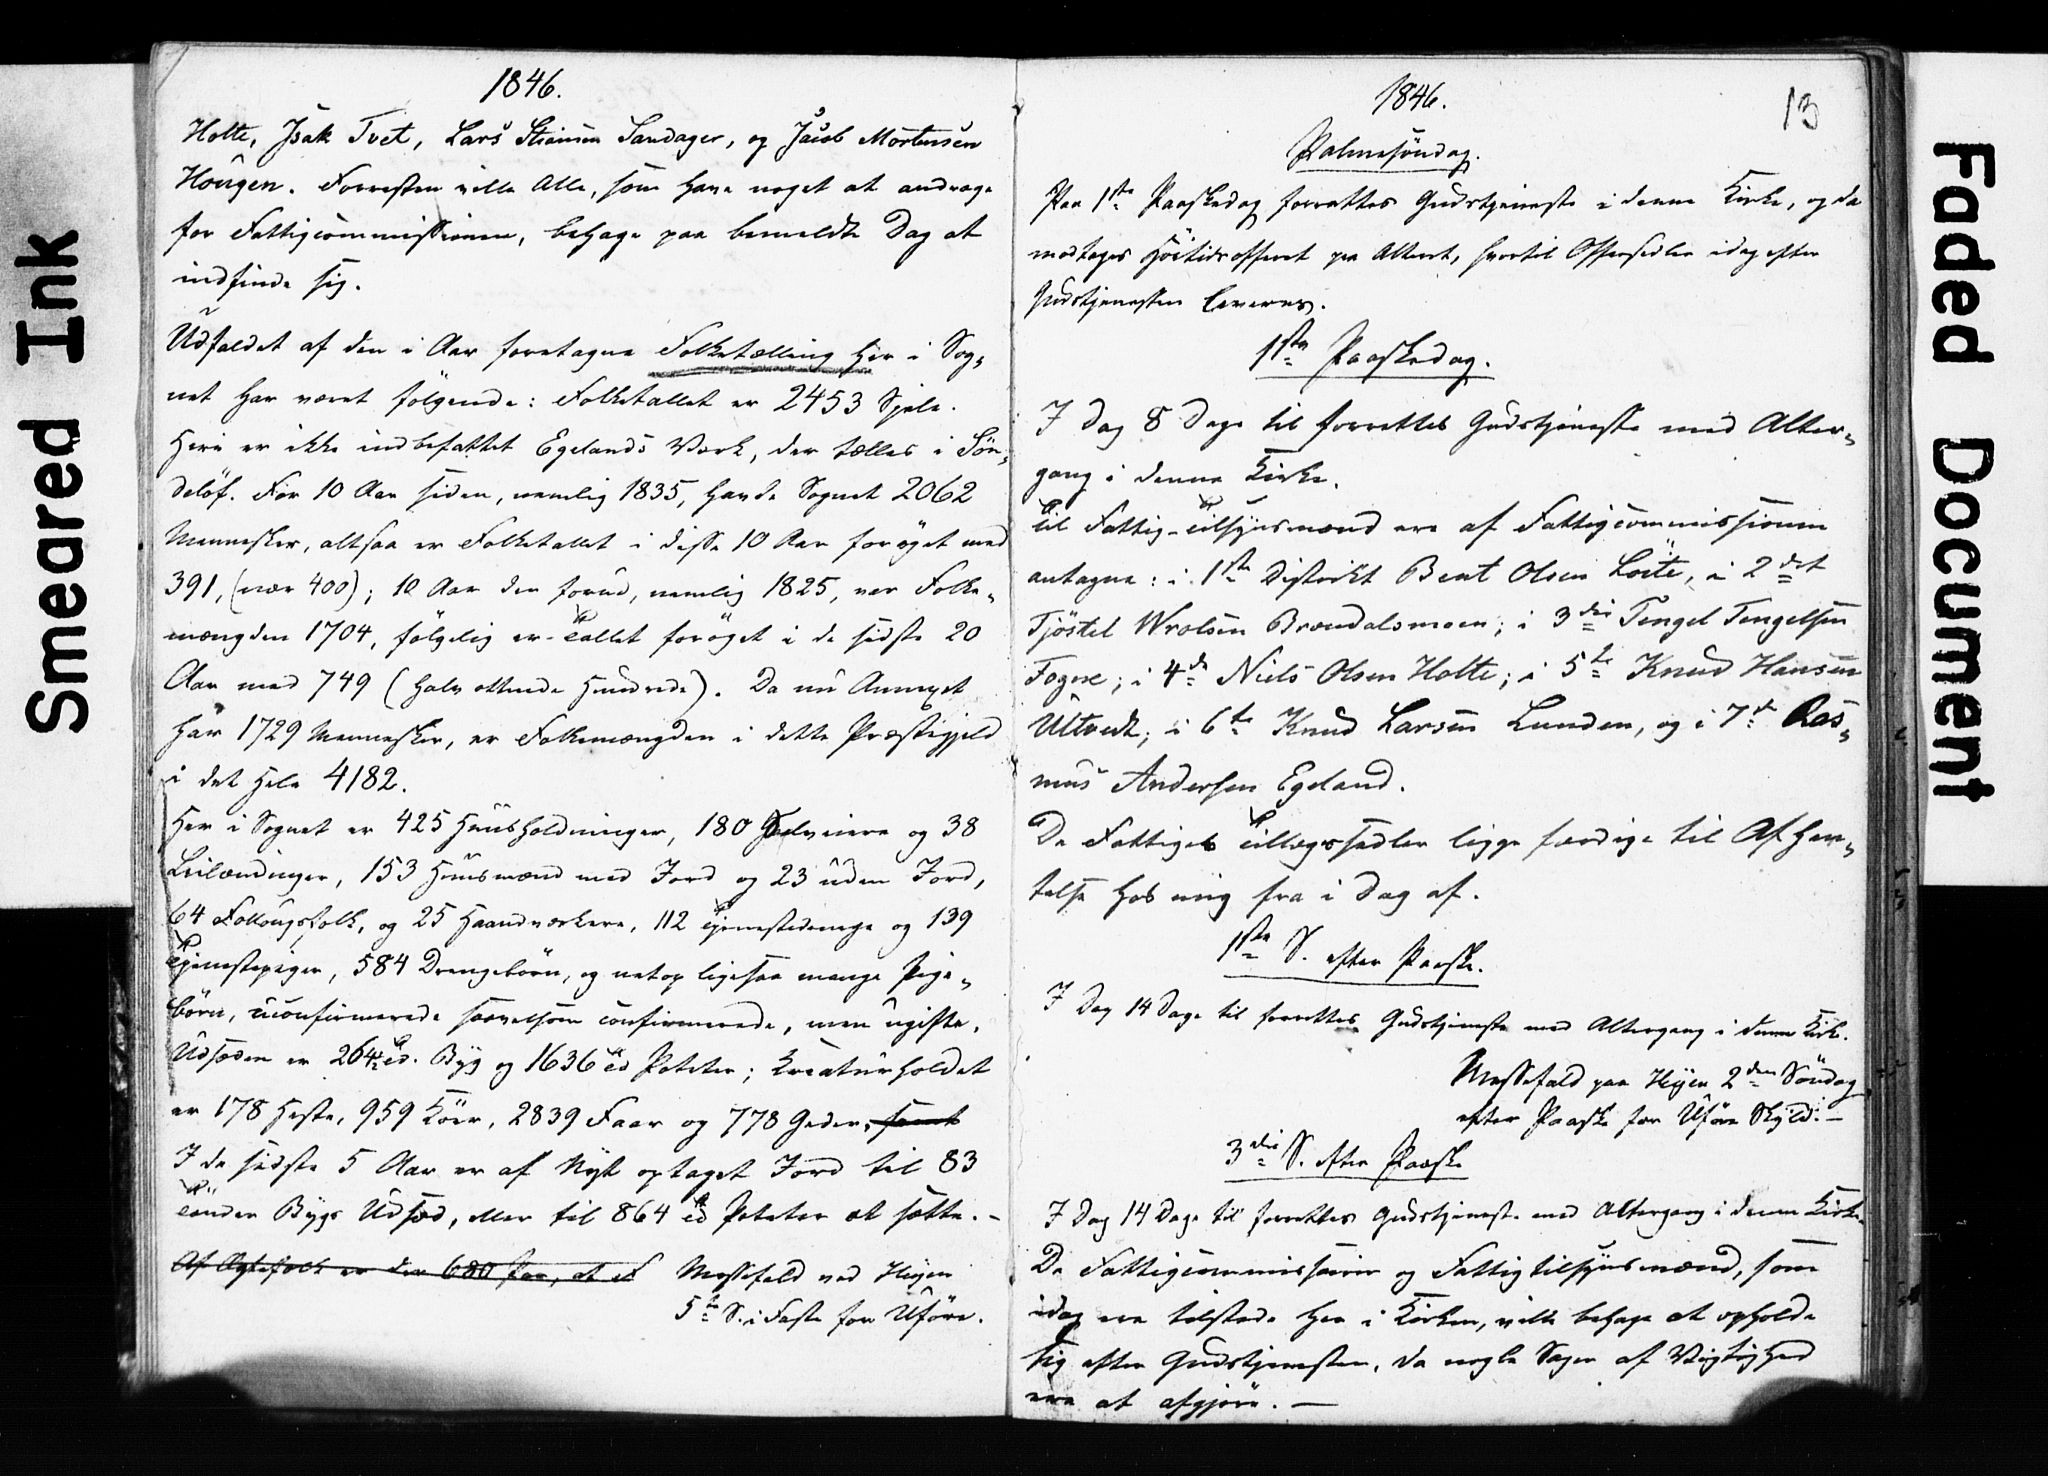 Smeared Ink
1846.
Holte, Isak Tvet, Lars Sandager, og Jacob Mortensen
Hougen. Forresten ville Alle, som have noget at andrage
for Fattigcommissionen, behage paa bemeldte Dag at
indfinde sig.
Udfaldet af den i Aar foretagne Folketælling her i Sog-
net har været fölgende: Folketallet er 2453 Sjele.
Heri er ikke indbefattet Egelands Værk, der tælles i Sön-
delöf. For 10 Aar siden, nemlig 1835, havde Sognet 2062
Mennesker, altsaa er Folketallet i disse 10 Aar forøget med
391, (nær 400); 10 Aar der forud, nemlig 1825, var Folke-
mængden 1704, fölgelig er Tallet forøget i de sidste 20
Aar med 749 (halv ottende Hundrede). Da nu Annexet
har 1729 Mennesker, er Folkemængden i dette Præstegjeld
i det Hele 4182.
Her i Sognet er 425 Huusholdninger, 180 Selveiere og 38
Leilændinger, 153 Huusmænd med Jord og 23 uden Jord,
64 Follougsfolk, og 25 Haandværkere, 112 Tjenestedrenge og 139
Tjenestepiger, 584 Drengebörn, og netop ligesaa mange Pige-
börn, uconfirmerede saavelsom confirmerede, men ugifte.
Udsæden er 264½ Td. Byg og 1636 Td Poteter; Kreaturholdet
er 178 Heste, 959 Köer, 2839 Faar og 778 Geder, samt
I de sidste 5 Aar er af Nyt optaget Jord til 83
Tönder Bygs Udsæd, eller til 864 Td Poteter at sætte. –
Af Ægtefolk er der 680 Par, at F
Messefald ved Heien
5te S. i Faste for Uföre.
1846.
13
Palmesöndag.
Paa 1ste Paaskedag forrettes Gudstjeneste i denne Kirke, og da
modtages Höitidsofferet paa Alteret, hvortil Offersedler idag efter
Gudstjenesten leveres.
1ste Paaskedag.
I Dag 8 Dage til forrettes Gudstjeneste med Alter-
gang i denne Kirke.
Til Fattig-Tilsynsmænd ere af Fattigcommissionen
antagne: i 1ste Distrikt Bent Olsen Löite, i 2det
Tjöstel Wrolsen Brændalsmoen; i 3die Tengel Tengelsen
Fogne; i 4de Niels Olsen Holte; i 5te Knud Hansen
Ultvedt; i 6te Knud Larsen Lunden, og i 7de Ras-
mus Andersen Egeland.
De Fattiges Tillægssedler ligge færdige til Afhen-
telse hos mig fra i Dag af.
1ste S. efter Paaske.
I Dag 14 Dage til forrettes Gudstjeneste med Altergang i denne Kirke.
Messefald paa Heien 2den Söndag
efter Paaske for Uföre Skyld. –
3die S. efter Paaske
I Dag 14 Dage til forrettes Gudstjeneste med Altergang i denne Kirke.
De Fattigcommissairer og Fattigtilsynsmænd, som
idag ere tilstede her i Kirken, ville behage at opholde
sig efter Gudstjenesten, da nogle Sager af Vigtighed
ere at afgjöre. –
Faded Document